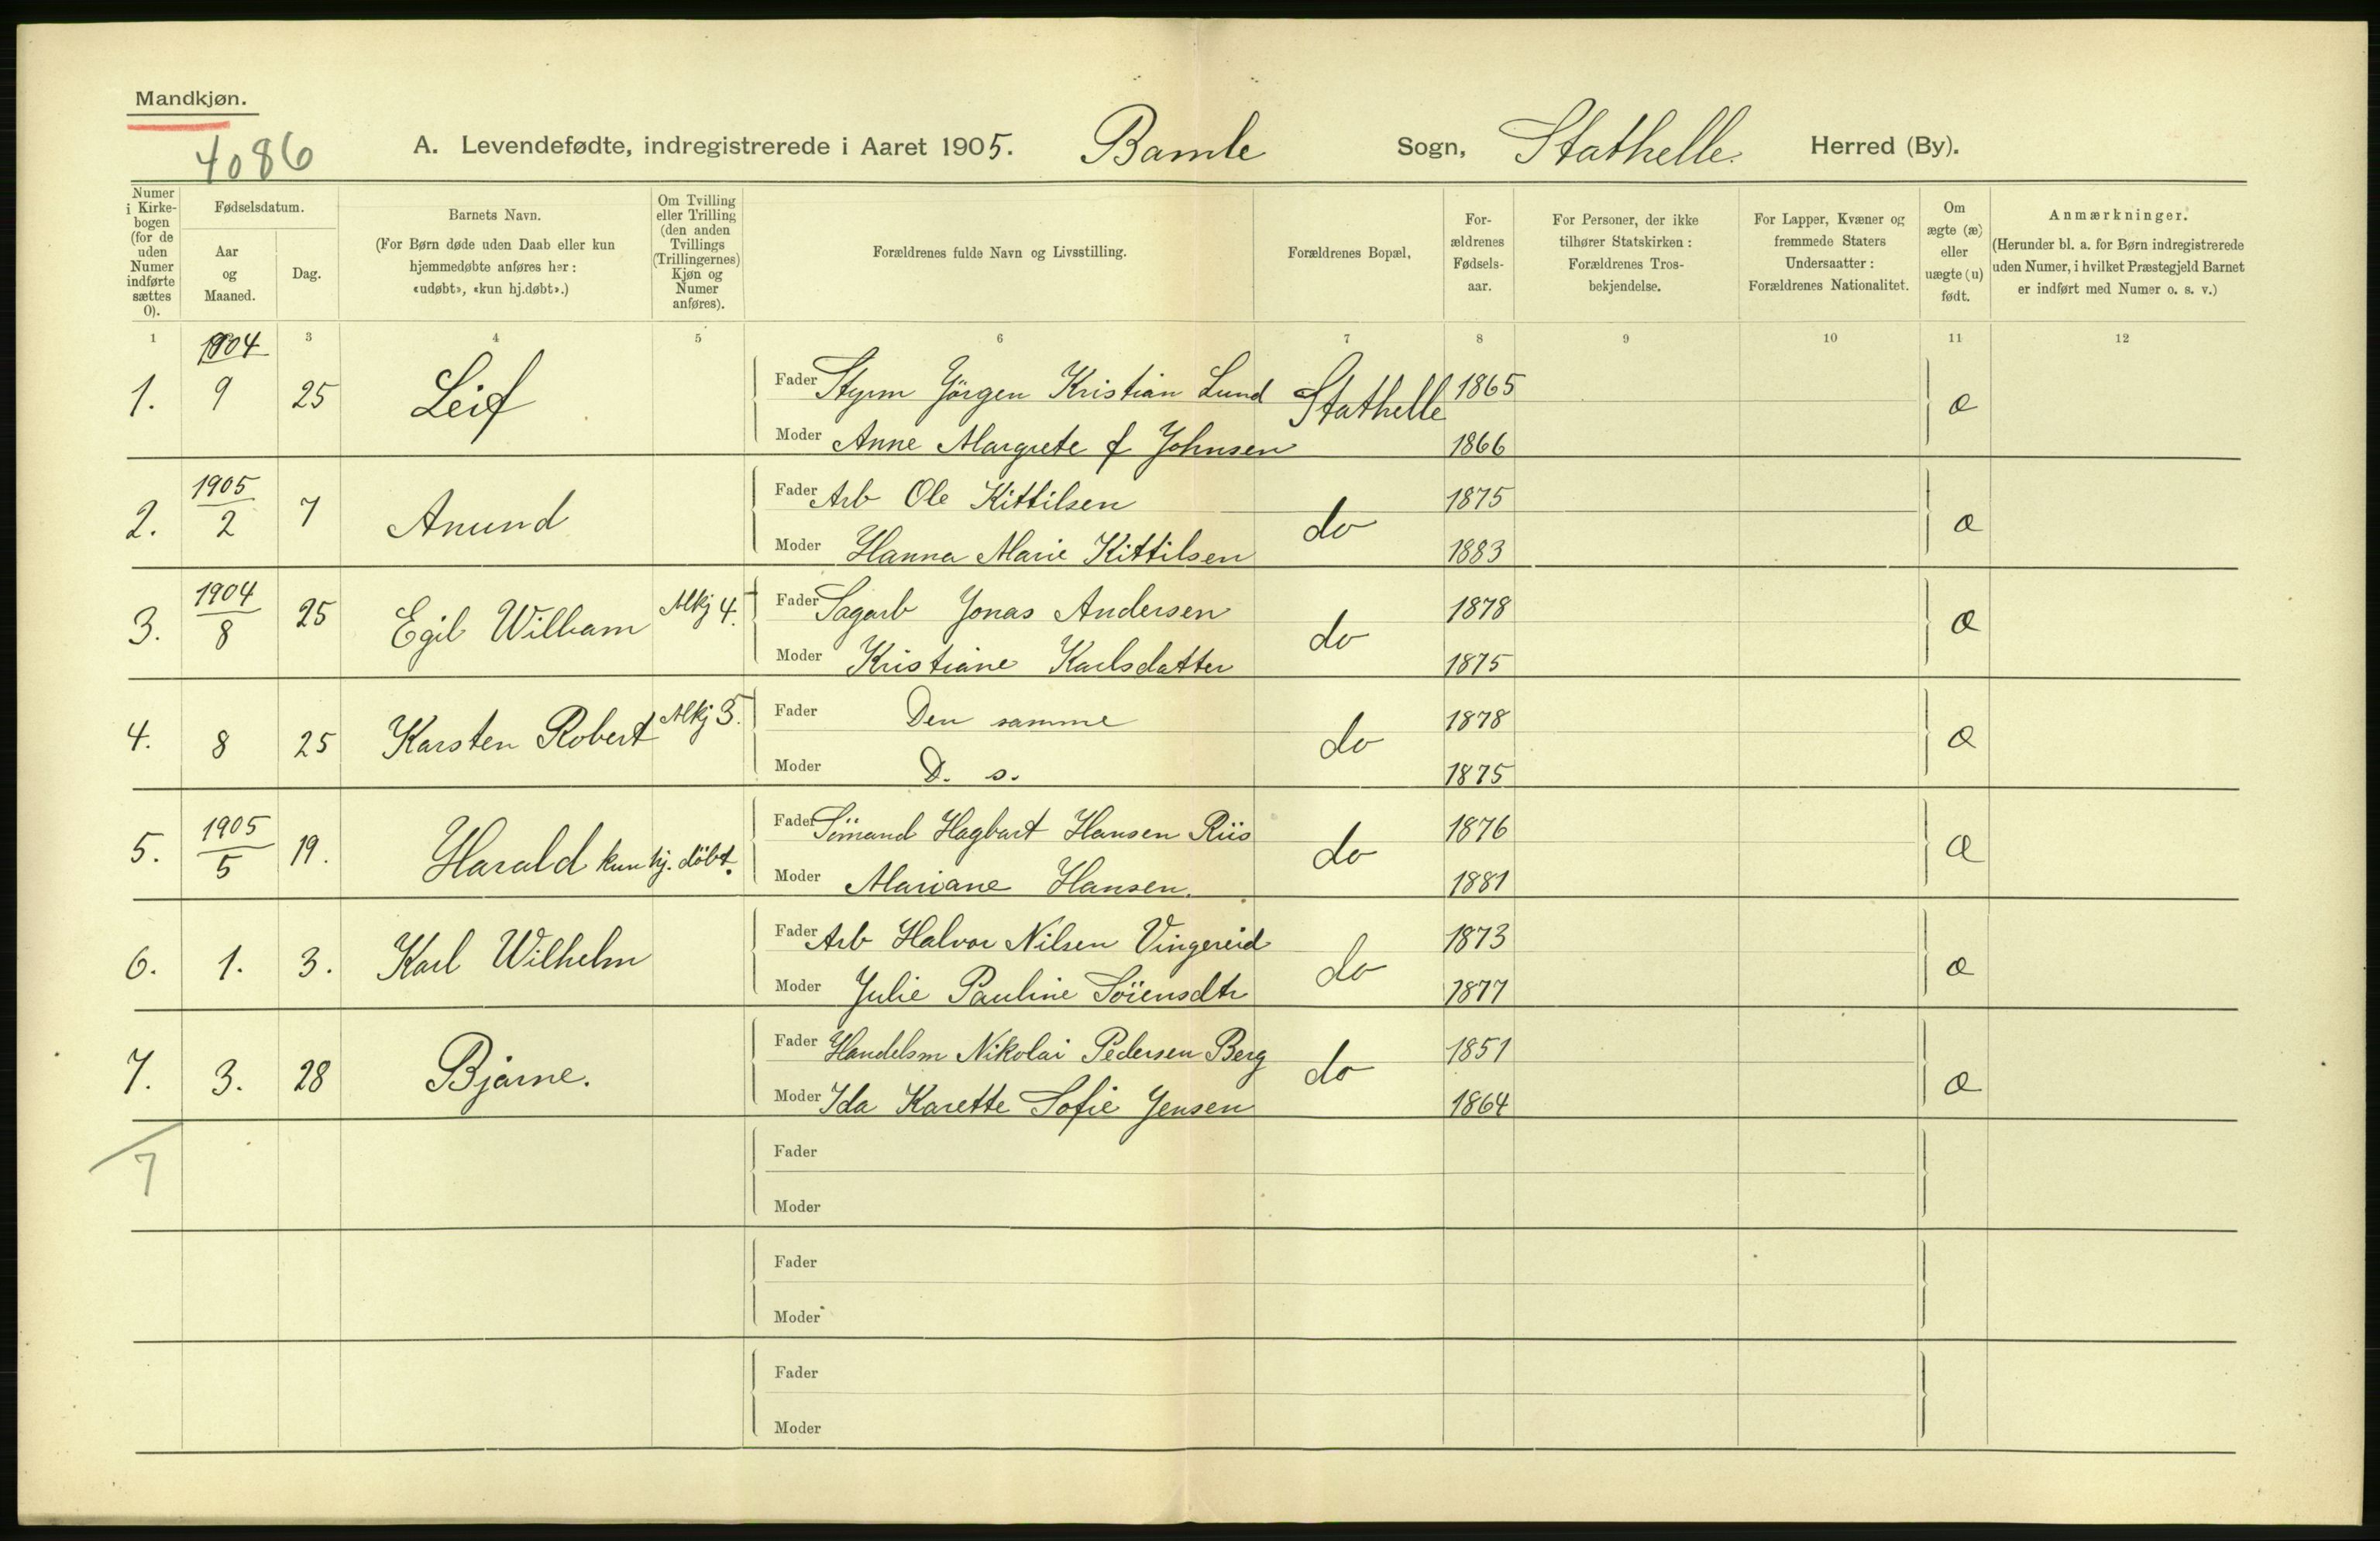 Mandkjøn.
4086
A. Levendefødte, indregistrerede i Aaret 1905. Bamle Sogn, Stathelle Herred (By).
Numer i Kirkebogen (for de uden Numer indførte sættes 0).
Fødselsdatum.
Aar og Maaned.
Dag.
Barnets Navn.
(For Børn døde uden Daab eller kun hjemmedøbte anføres her: «udøbt», «kun hj.døbt».)
Om Tvilling eller Trilling (den anden Tvillings (Trillingernes) Kjøn og Numer anføres).
Forældrenes fulde Navn og Livsstilling.
Forældrenes Bopæl,
Forældrenes Fødselsaar.
For Personer, der ikke tilhører Statskirken: Forældrenes Trosbekjendelse.
For Lapper, Kvæner og fremmede Staters Undersaatter: Forældrenes Nationalitet.
Om ægte (æ) eller uægte (u) født.
Anmærkninger.
(Herunder bl. a. for Børn indregistrerede uden Numer, i hvilket Præstegjeld Barnet er indført med Numer o. s. v.)
1 3 4 5 6 7 8 9 10 11 12
1904
1. 9 25 Leif Fader Styrm Jörgen Kristian Lund Stathelle 1865 æ
Moder Anne Margrete f Johnsen 1866
1905
2. 2 7 Anund Fader Arb Ole Kittilsen do 1875 æ
Moder Hanna Marie Kittilsen 1883
1904
3. 8 25 Egil William Mkj 4. Fader Sagarb Jonas Andersen do 1878 æ
Moder Kristiane Karlsdatter 1875
4. 8 25 Karsten Robert Mkj 3. Fader Den samme do 1878 æ
Moder D. s. 1875
1905
5. 5 19. Harald kun hj. döbt. Fader Sömand Hagbart Hansen Riis do 1876 æ
Moder Mariane Hansen. 1881
6. 1. 3. Karl Wilhelm Fader Arb Halvor Nilsen Vingereid do 1873 æ
Moder Julie Pauline Söiensdtr 1877
7. 3. 28 Bjarne. Fader Handelsm Nikolai Pedersen Berg do 1851 æ
Moder Ida Karette Sofie Jensen 1864
7
Fader
Moder
Fader
Moder
Fader
Moder